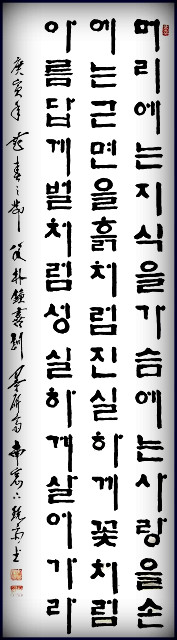 머리에는지식을가슴에는사랑을손
에는근면을흙처럼진실하게꽃처럼
아름답게벌처럼성실하게살아가라
庚寅年 春之節 南窓下